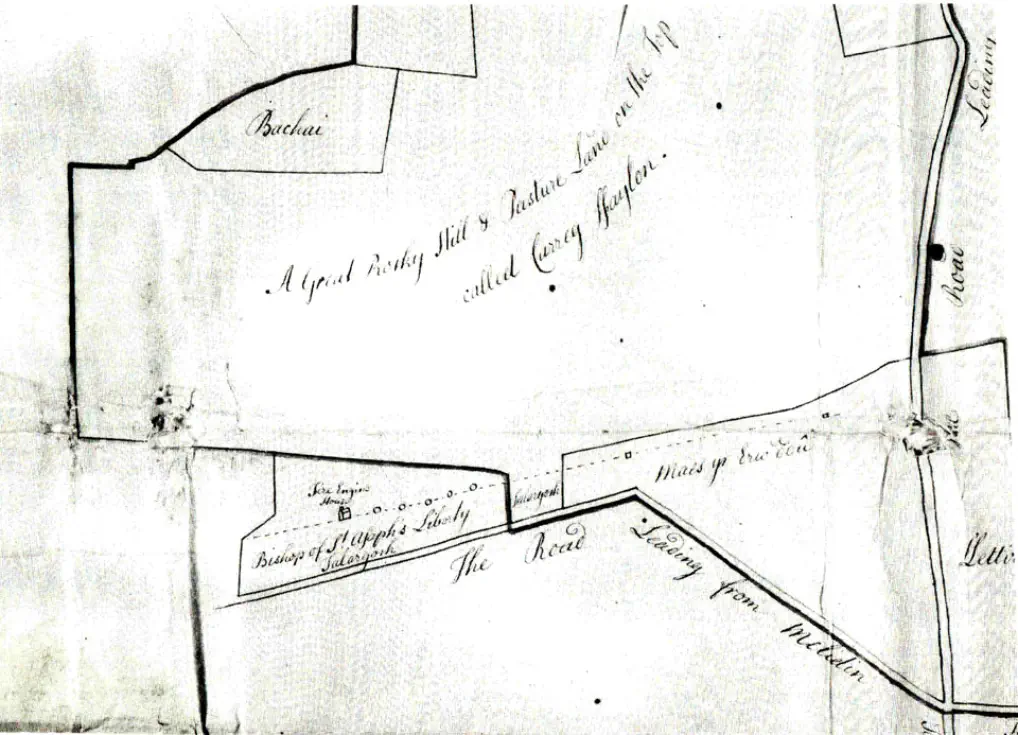 Bachai
A Great Rocky Hill & Pasture Land on the Top
called Carreg ffaylon.
Leading
Road
The
Fire Engine
House
Bishop of St Asaphs Liberty
Talargoch
Talargoch
Maes yr Eriw
The Road Leading from Meledin